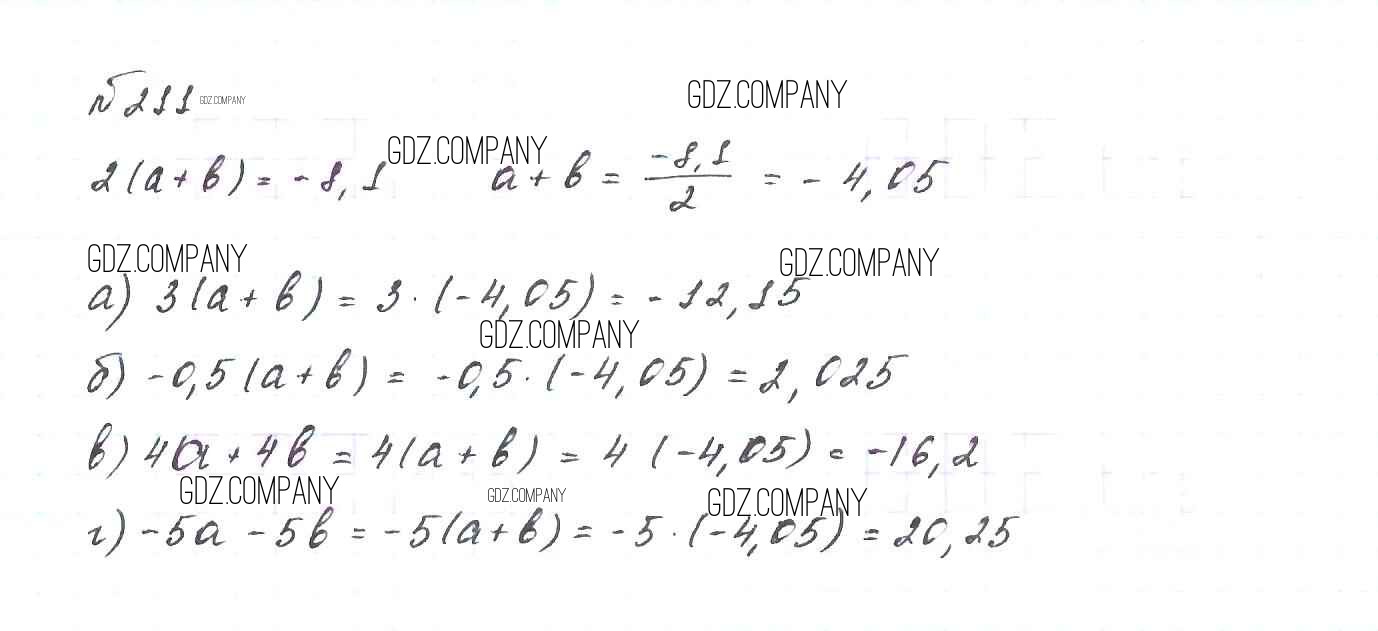 №211 GDZ.COMPANY GDZ.COMPANY
GDZ.COMPANY
2(a+b)=-8,1 a+b = -8,1/2 = -4,05
GDZ.COMPANY GDZ.COMPANY
а) 3(a+b) = 3·(-4,05) = -12,15
GDZ.COMPANY
б) -0,5(a+b) = -0,5·(-4,05) = 2,025
в) 4a+4b = 4(a+b) = 4(-4,05) = -16,2
GDZ.COMPANY GDZ.COMPANY GDZ.COMPANY
г) -5a-5b = -5(a+b) = -5·(-4,05) = 20,25